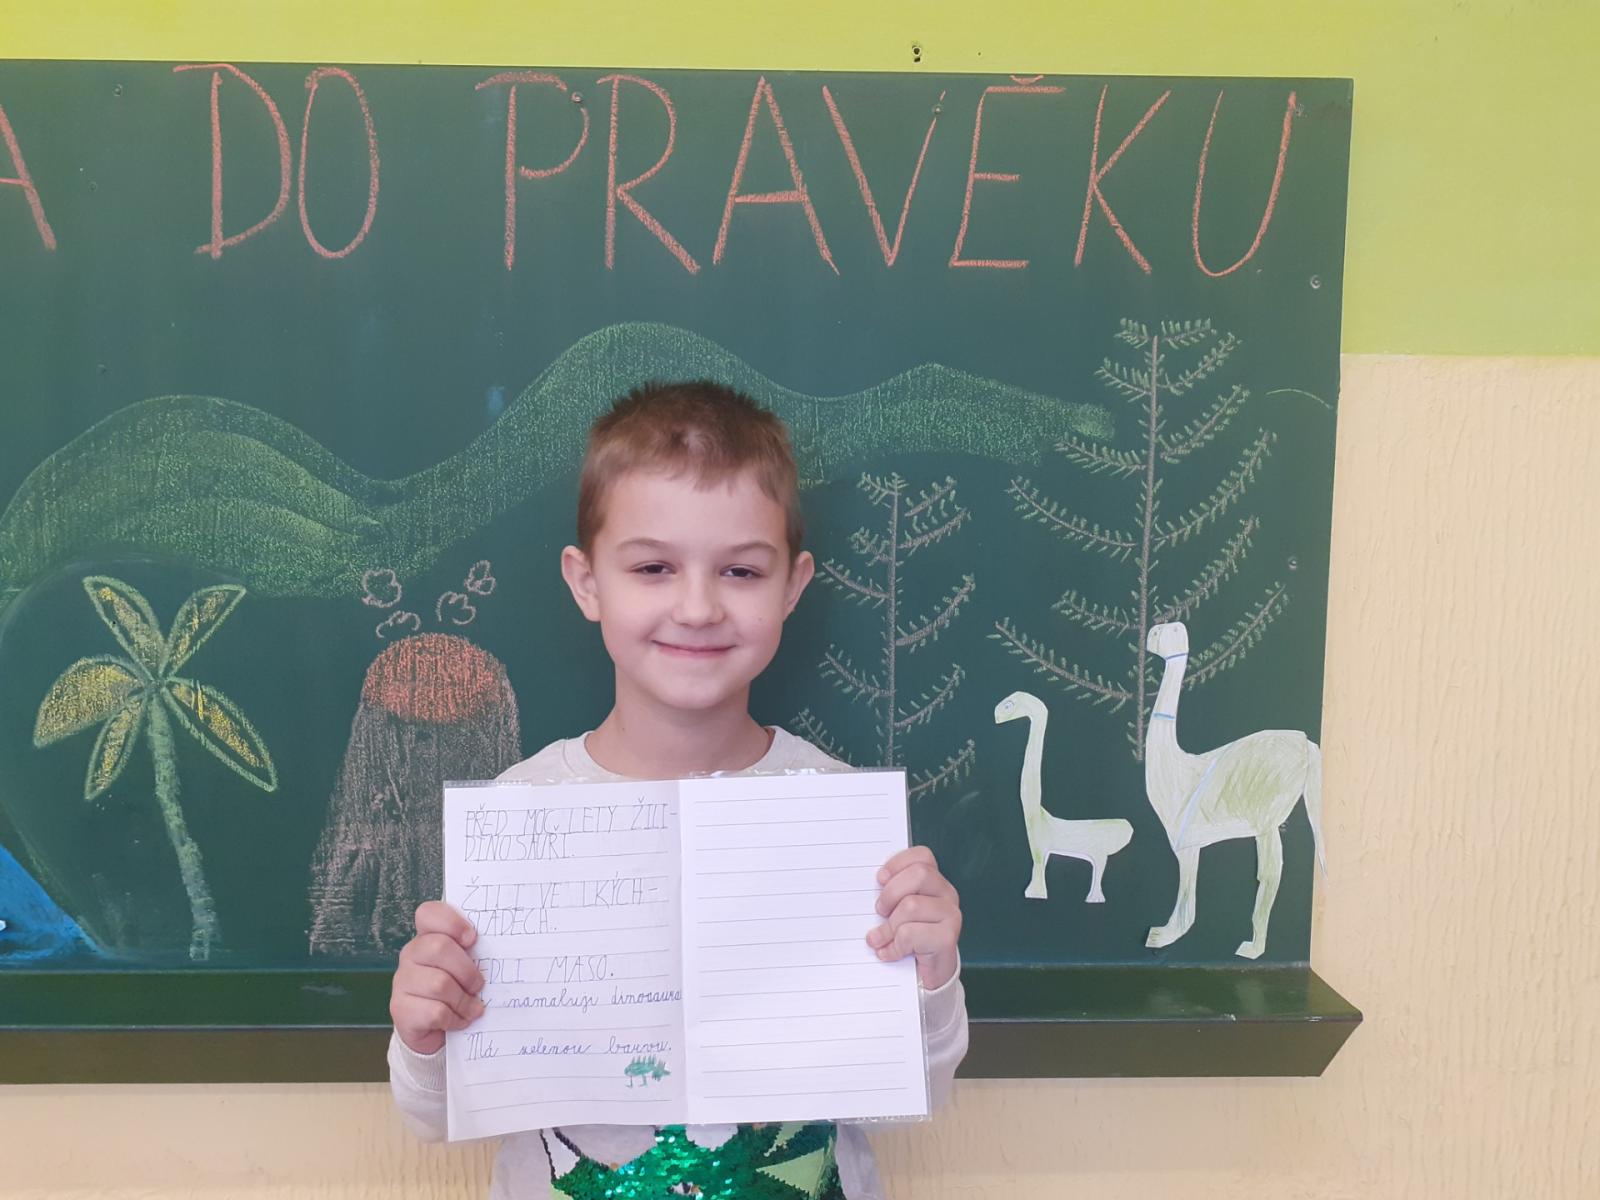 A DO PRAVĚKU
PŘED MOC LETY ŽILI-
DINOSAUŘI.
ŽILI VE LKÝCH-
STÁDECH.
JEDLI MASO.
namaluji dinosaura
Má zelenou barvu.